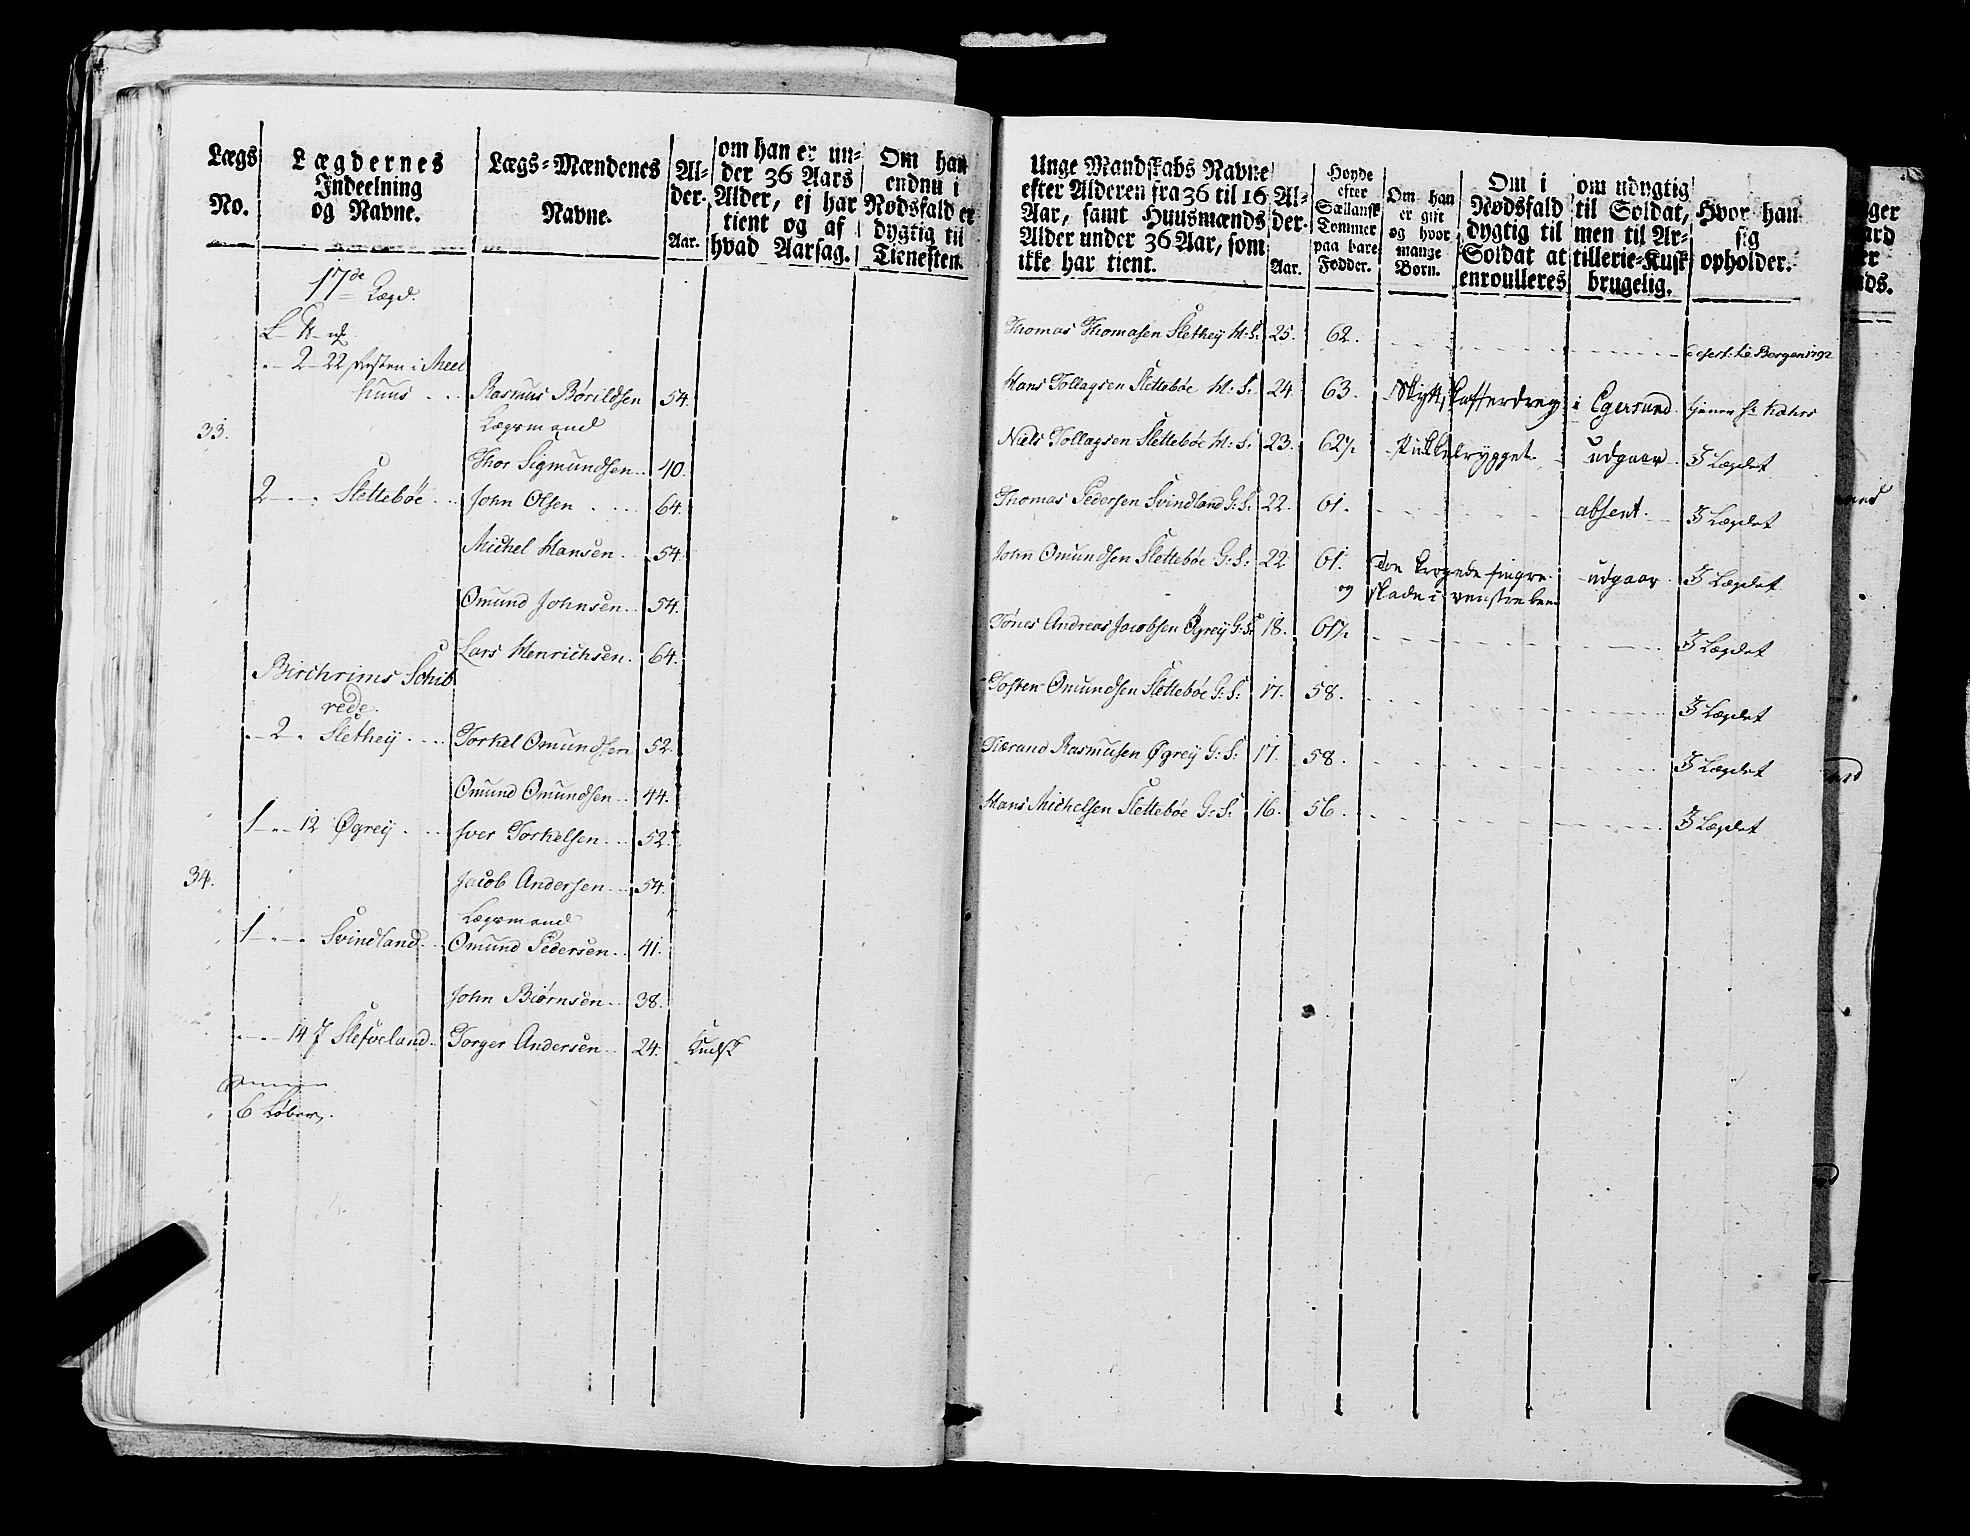 Lægs No.
Lægdernes Indeelning og Navne.
Lægs-Mændenes Navne.
Al- der. Aar.
om han er un- der 36 Aars Alder, ej har tient og af hvad Aarsag.
Om han endnu i Nødsfald er dygtig til Tienesten.
17de Lægd.
2 22 Præsten i Meel
huus Rasmus Børildsen 54.
33. Lægsmand
Thor Sigmundsen 40.
2 Slettebøe John Olsen 64.
Michel Hansen 54.
Omund Johnsen 54.
Lars Henrichsen 64.
Birchrims Schib
rede.
2 Slethey Torkel Omundsen 52.
Omund Omundsen 44.
1 12 Øgrey Iver Torkelsen 52.
34. Jacob Andersen 54.
Lægsmand
1 Svindland Omund Pedersen 41.
John Biørnsen 38.
14 Torger Andersen 24. Kudsk
6 Løber
Unge Mandskabs Navne efter Alderen fra 36 til 16 Aar, samt Huusmænds Alder under 36 Aar, som ikke har tient.
Al- der. Aar.
Høyde efter Sællansk Tommer paa bare Fødder.
Om han er gift og hvor mange Børn.
Om i Nødsfald dygtig til Soldat at enroulleres
om udygtig til Soldat, men til Ar- tillerie-Kusk brugelig.
Hvor han sig opholder.
Thomas Thomasen Slethey H: S. 25. 62. Bergen 1792
Hans Tollagsen Slettebøe H: S. 24. 63. i Egersund
Niels Tollagsen Slettebøe H: S. 23. 62½ Pukkelrygget udgaar I Lægdet
Thomas Pedersen Svindland G: S. 22. 61. absent I Lægdet
John Omundsen Slettebøe G: S. 22. 61. krogede fingre udgaar I Lægdet
og skade i venstre been
Tønes Andreas Jacobsen Øgrey G: S. 18. 61½ I Lægdet
Tosten Omundsen Slettebøe G: S. 17. 58. I Lægdet
Tiærand Rasmusen Øgrey G: S. 17. 58. I Lægdet
Hans Michelsen Slettebøe G: S. 16. 56. I Lægdet